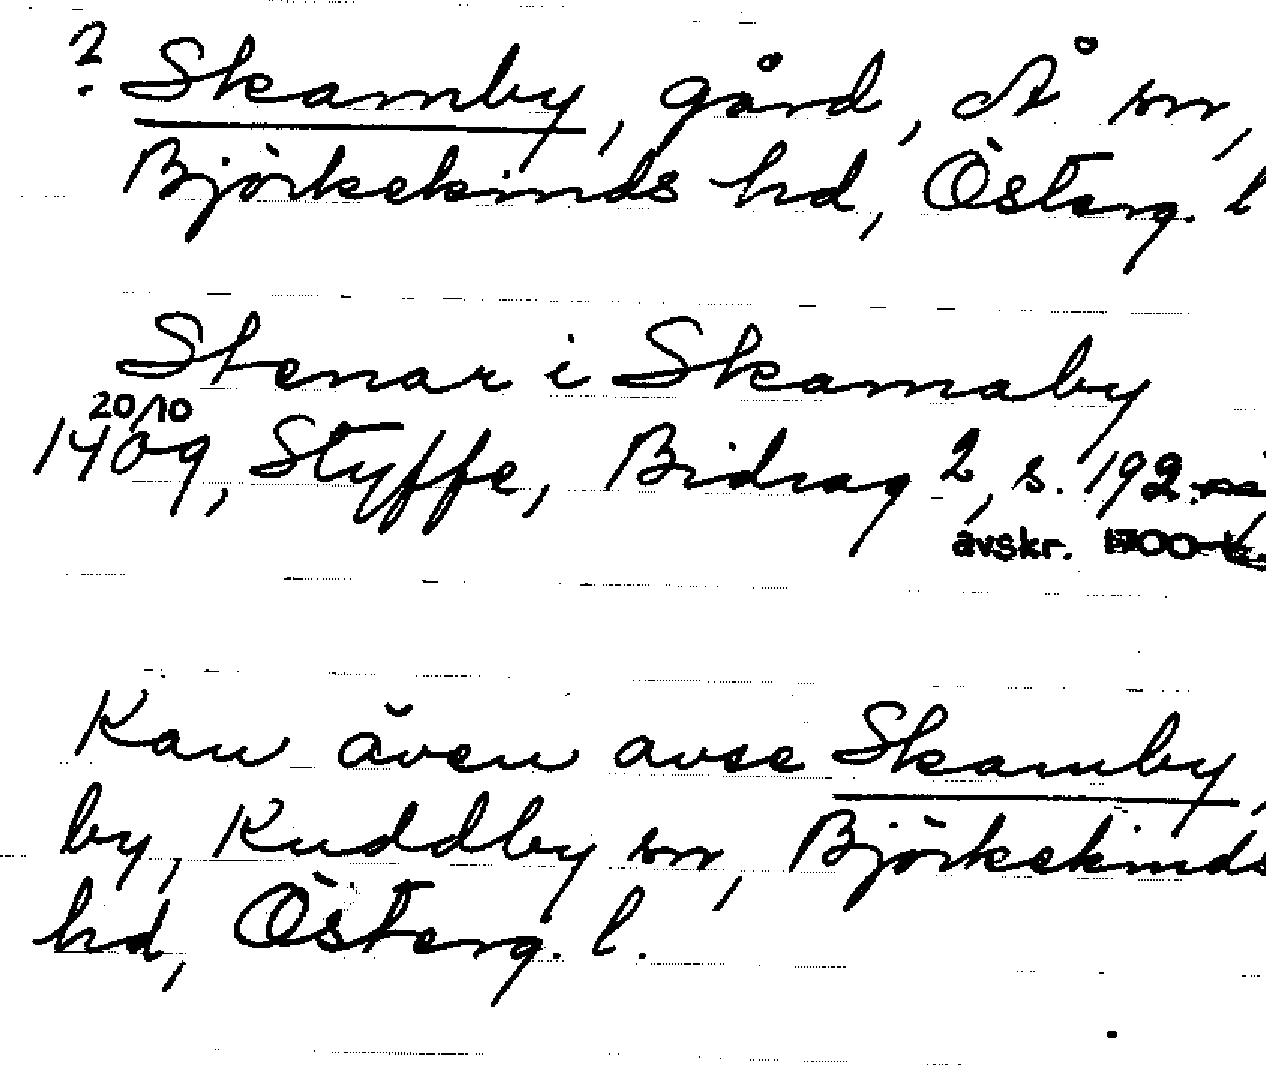 ? Skamby, gård, Å sn,
Björkekinds hd, Österg. l
Stenar i Skamaby
20/10
1409, Styffe, Bidrag 2, s. 192.
avskr.
Kan även avse Skamby,
by, Kuddby sn, Björkekinds
hd, Österg. l.